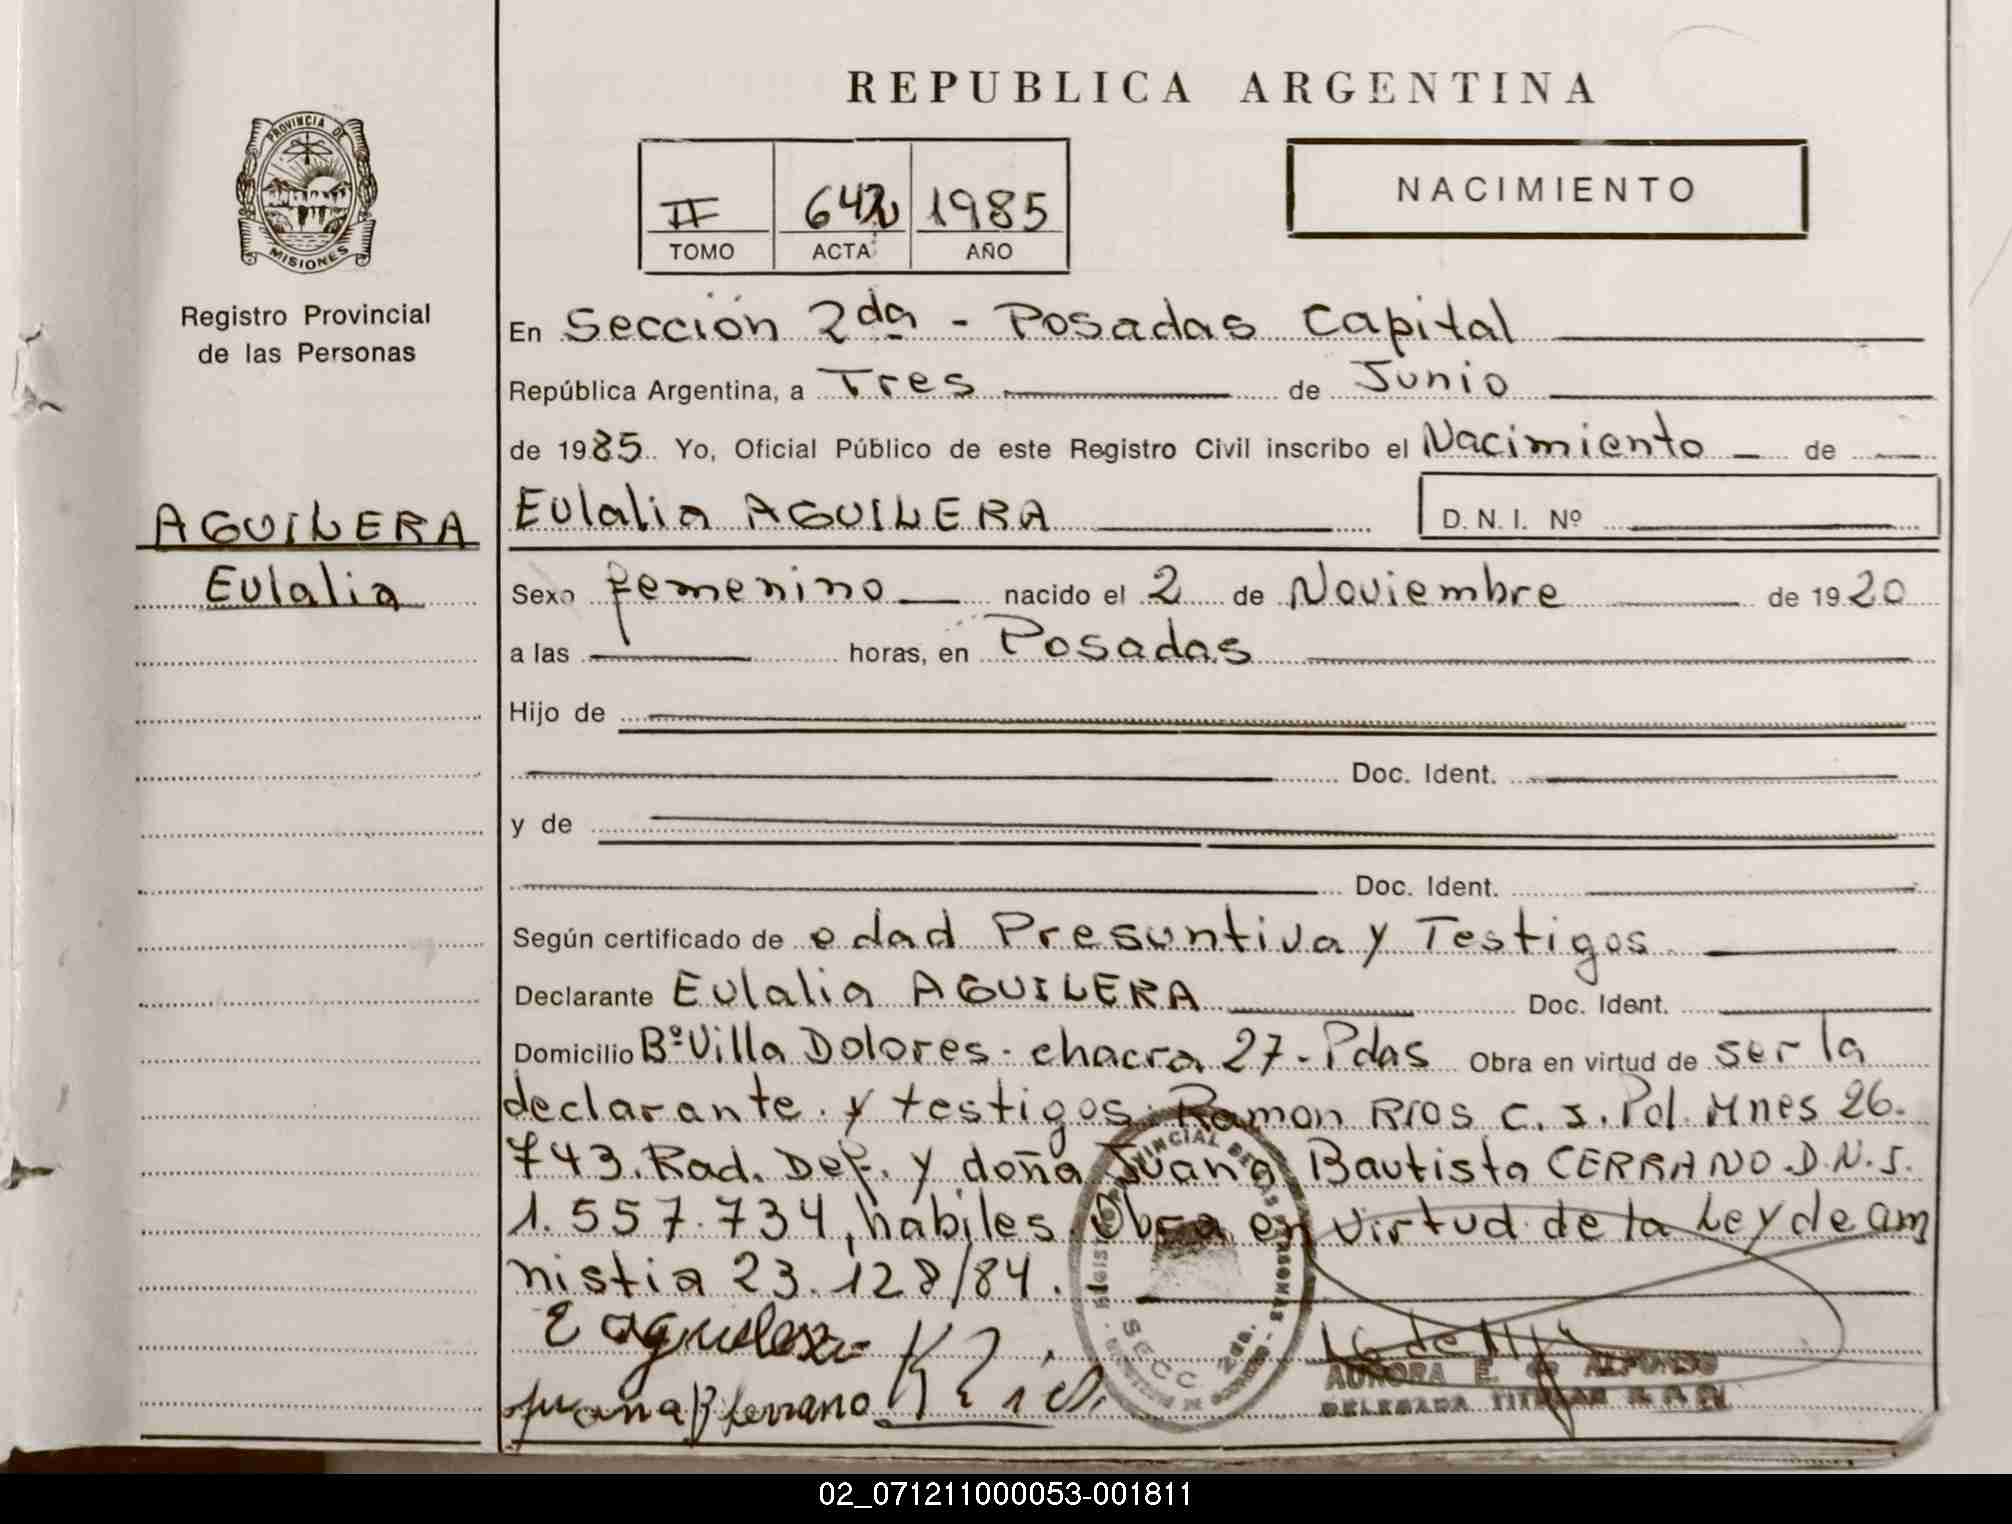 REPUBLICA ARGENTINA
PROVINCIA DE
MISIONES
Registro Provincial
de las Personas
II 642 1985
TOMO ACTA AÑO
NACIMIENTO
En Sección 2da - Posadas Capital
República Argentina, a Tres de Junio
de 1985. Yo, Oficial Público de este Registro Civil inscribo el Nacimiento de
AGUILERA
Eulalia
Eulalia AGUILERA D. N. I. Nº
Sexo femenino nacido el 2 de Noviembre de 1920
a las horas, en Posadas
Hijo de
Doc. Ident.
y de
Doc. Ident.
Según certificado de edad Presuntiva y Testigos
Declarante Eulalia AGUILERA Doc. Ident.
Domicilio Bº Villa Dolores - chacra 27 - Pdas Obra en virtud de ser la
declarante y testigos: Ramon RIOS C. I. Pol. Mnes 26.
743. Rad. Def. y doña Juana Bautista CERRANO D.N.I.
1.557.734, habiles. Obra en virtud de la Ley de am
nistia 23.128/84.
E aguilera
Juana B Serrano R Rios
SECC. 2da.
AURORA E. de ALFONSO
DELEGADA TITULAR
02_071211000053-001811